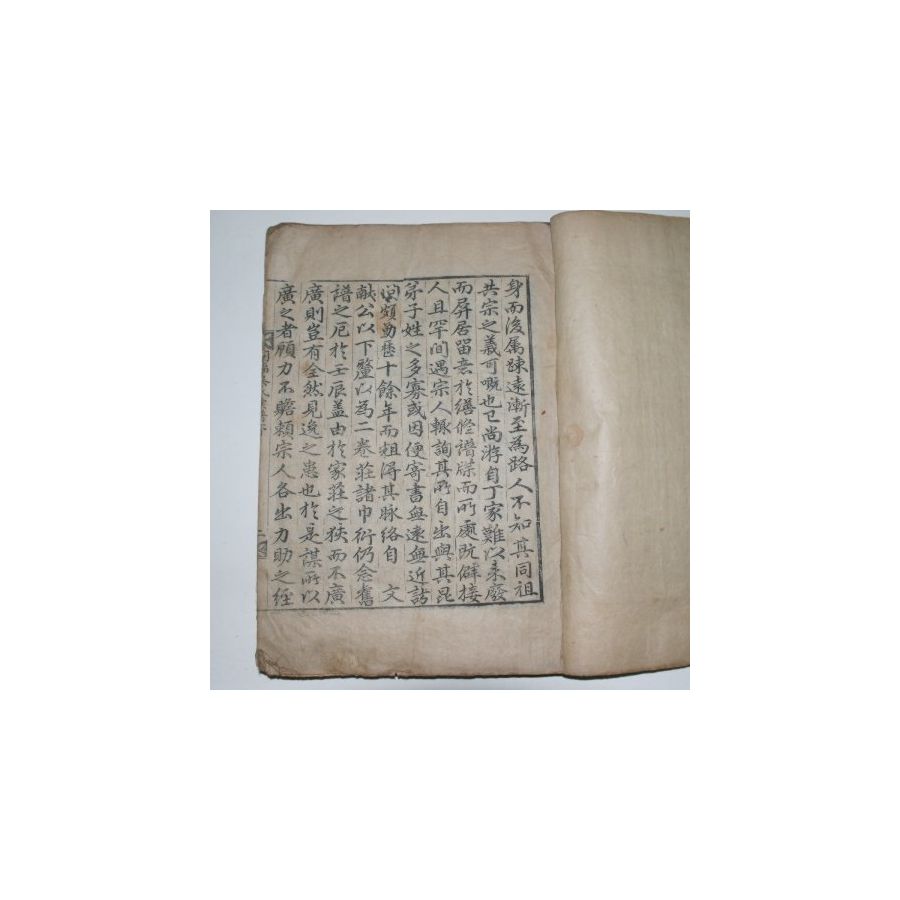 身而後属踈遠漸至為路人不知其同祖
共宗之義可嘅也已尚游自丁家難以来廢
而屏居留意於繕修譜牒而所處既僻接
人且罕間遇宗人輒詢其所自出與其昆
弟子姓之多寡或因便寄書無遠無近訪
問頗勤歷十餘年而粗得其脉絡自 文
献公以下釐以為二卷莊諸巾衍仍念舊
譜之厄於壬辰盖由於家莊之狹而不廣
廣則豈有全然見逸之患也於是謀所以
廣之者顧力不贍頼宗人各出力助之經